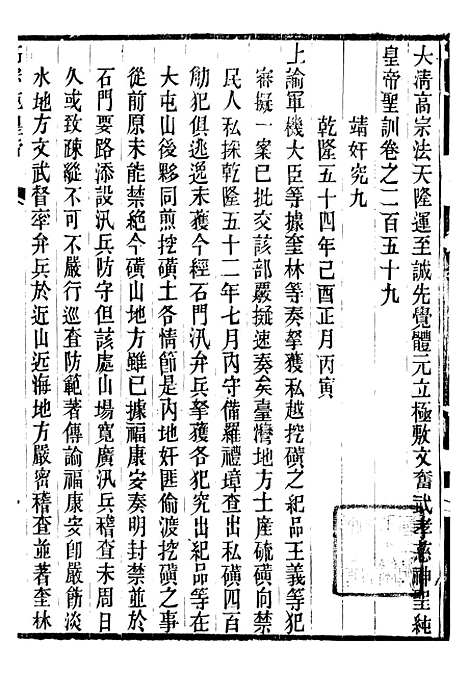 大清高宗法天隆運至誠先覺體元立極敷文奮武孝慈神聖純
皇帝聖訓卷之二百五十九
靖奸宄九
乾隆五十四年己酉正月丙寅
上諭軍機大臣等據奎林等奏拏獲私越挖磺之紀品王義等犯
審擬一案已批交該部嚴擬速奏矣臺灣地方土產硫磺向禁
民人私採乾隆五十二年七月內守備羅禮璋查出私磺四百
觔犯俱逃逸未獲今經石門汛弁兵拏獲各犯究出紀品等在
大屯山後夥同煎挖磺土各情節是內地奸匪偷渡挖磺之事
從前原未能禁絕今磺山地方雖已據福康安奏明封禁並於
石門要路添設汛兵防守但該處山場寬廣汛兵稽查未周日
久或致疎縱不可不嚴行巡查防範著傳諭福康安卽嚴飭淡
水地方文武督率弁兵於近山近海地方嚴密稽查並著奎林